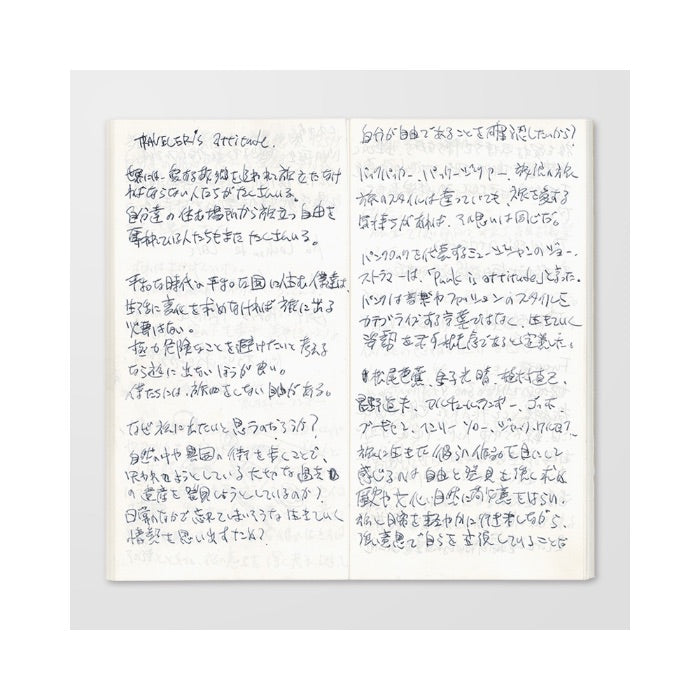 TRAVELER'S attitude.
世界には、愛する故郷を追われ旅立たなけ
ればならない人たちがたくさんいる。
自分達の住む場所から旅立つ自由を
奪われている人たちもまたたくさんいる。
平和な時代の平和な国に住む僕達は、
生活に変化を求めなければ旅に出る
必要はない。
極力危険なことを避けたいと考える
なら旅に出ないほうが良い。
僕たちには、旅をしない自由がある。
なぜ旅に出たいと思うのだろうか?
自然の中や異国の街を歩くことで、
失われようとしている大切な過去
の遺産を発見しようとしているのか?
日常のなかで忘れてしまいそうな生きていく
情熱を思い出すため?
自分が自由であることを確認したいから?
バックパッカー、パッケージツアー、旅行の旅
旅のスタイルは違っていても、旅を愛する
気持ちがあれば、その思いは同じだ。
パンクロックを代表するミュージシャンのジョー・
ストラマーは、「Punk is attitude」と言った。
パンクは音楽やファッションのスタイルを
カテゴライズする言葉ではなく、生きていく
姿勢を示す概念であると定義した。
松尾芭蕉、金子光晴、植村直己、
星野道夫、アルチュール・ランボー、ゴッホ、
ゴーギャン、ヘンリー・ソロー、ジャック・ケルアック、
旅に生きた彼らの作品を目にして
感じるのは自由と発見を強く求め
歴史や文化、自然に敬意をはらい、
旅と日常を軽やかに行き来しながら、
強い意思で自らを変換していることだ